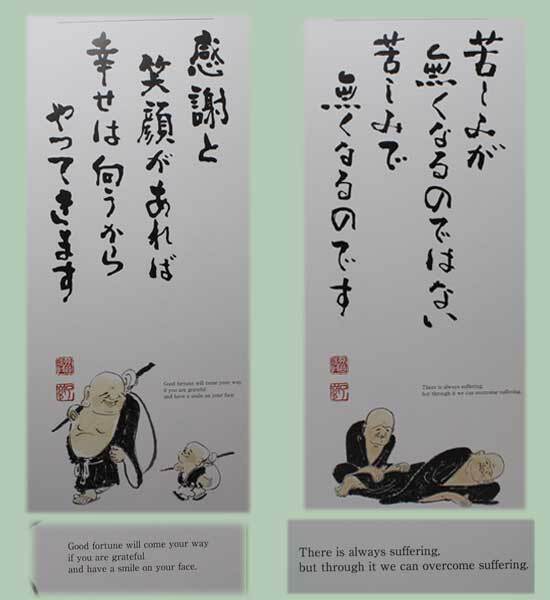 感謝と
笑顔があれば
幸せは向うから
やってきます
Good fortune will come your way
if you are grateful
and have a smile on your face.
苦しみが
無くなるのではない
苦しみで
無くなるのです
There is always suffering,
but through it we can overcome suffering.
Good fortune will come your way
if you are grateful
and have a smile on your face.
There is always suffering,
but through it we can overcome suffering.